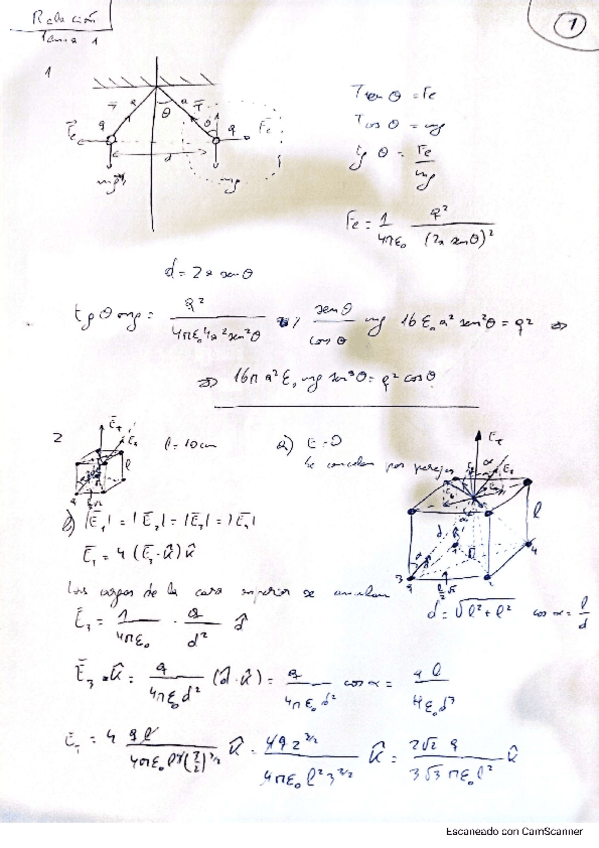 Relación
Tema 1
1
1
T sen θ = Fe
T cos θ = mg
tg θ = Fe / mg
Fe = 1 / 4πε₀ q² / (2a sen θ)²
d = 2a sen θ
tg θ mg = q² / 4πε₀ 4a² sen² θ sen θ / cos θ mg 16 ε₀ a² sen² θ = q² ⇒
⇒ 16π a² ε₀ mg sen³ θ = q² cos θ
2 l = 10 cm a) E = 0
Se cancelan por parejas
b) |E₁| = |E₂| = |E₃| = |E₄|
E₁ = 4 (E₃ · k̂) k̂
Las cargas de la cara superior se anulan
d = √(l² + l²) cos α = l / d
E₃ = 1 / 4πε₀ · q / d² d̂
E₃ · k̂ = q / 4πε₀ d² (d̂ · k̂) = q / 4πε₀ d² cos α = q l / 4ε₀ d³
E_T = 4 q l / 4πε₀ l³ (3/2)^3/2 k̂ = 4 q 2^3/2 / 4πε₀ l² 3^3/2 k̂ = 2√2 q / 3√3 πε₀ l² k̂
Escaneado con CamScanner